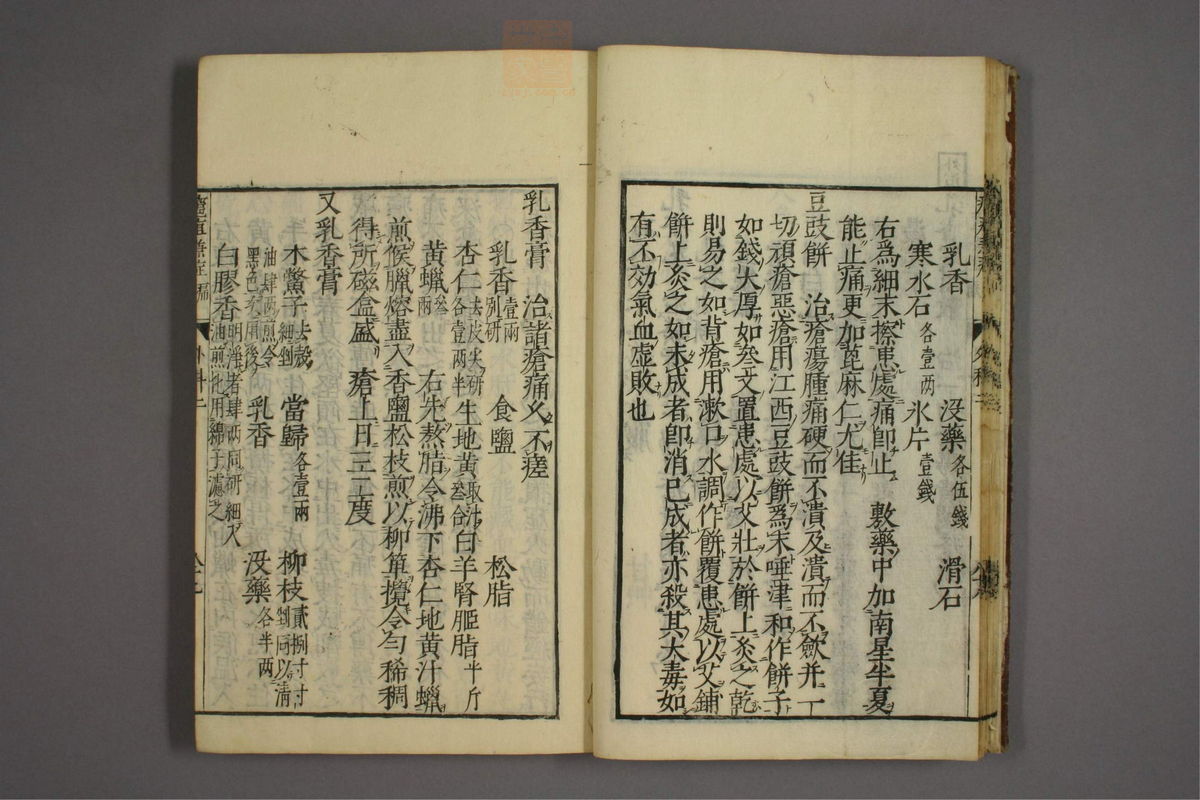 乳香 没藥各伍錢 滑石
寒水石各壹两 氷片壹錢
右爲細末擦患處痛即止 敷藥中加南星半夏
能止痛更加萞麻仁尤佳
豆豉餅 治瘡瘍腫痛硬而不潰及潰而不歛并一
切頑瘡惡瘡用江西豆豉餅爲末唾津和作餅子
如錢大厚如叁文置患處以艾壯於餅上灸之乾
則易之如背瘡用漱口水調作餅覆患處以艾鋪
餅上灸之如未成者即消已成者亦殺其大毒如
有不効氣血虚敗也
乳香膏 治諸瘡痛久不瘥
乳香壹兩别研 食鹽 松脂
杏仁去皮尖研各壹两半 生地黄取汁叁合 白羊腎脴脂半斤
黄蠟叁两 右先熬脂令沸下杏仁地黄汁蠟
煎候臘熔盡入香鹽松枝煎以柳箄攪令匀稀稠
得所磁盒盛 瘡上日三二度
又乳香膏
木鱉子去殻細剉 當歸各壹兩 柳枝貳捌寸寸剉同以清
油肆两煎令黑色次用後 乳香 没藥各半两
白膠香明淨者肆两同研細入油煎化用綿子濾之